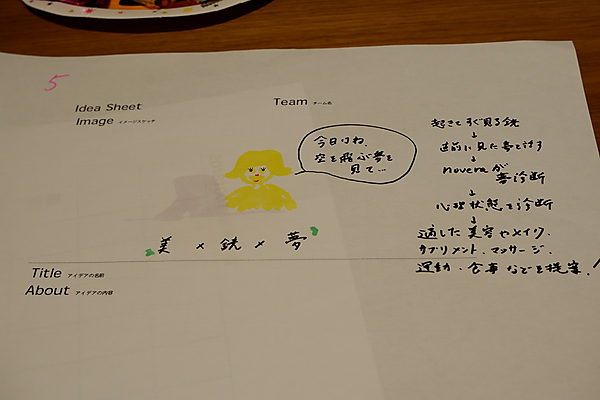 5
Idea Sheet
Image イメージスケッチ
Team チーム名
今日はね、
空を飛ぶ夢を
見て…
美 × 鏡 × 夢
起きてすぐ見る鏡
↓
直前に見た夢を話す
↓
noveraが
夢診断
↓
心理状態を診断
↓
適した美容やメイク、
サプリメント、マッサージ、
運動・食事などを提案！
Title アイデアの名前
About アイデアの内容